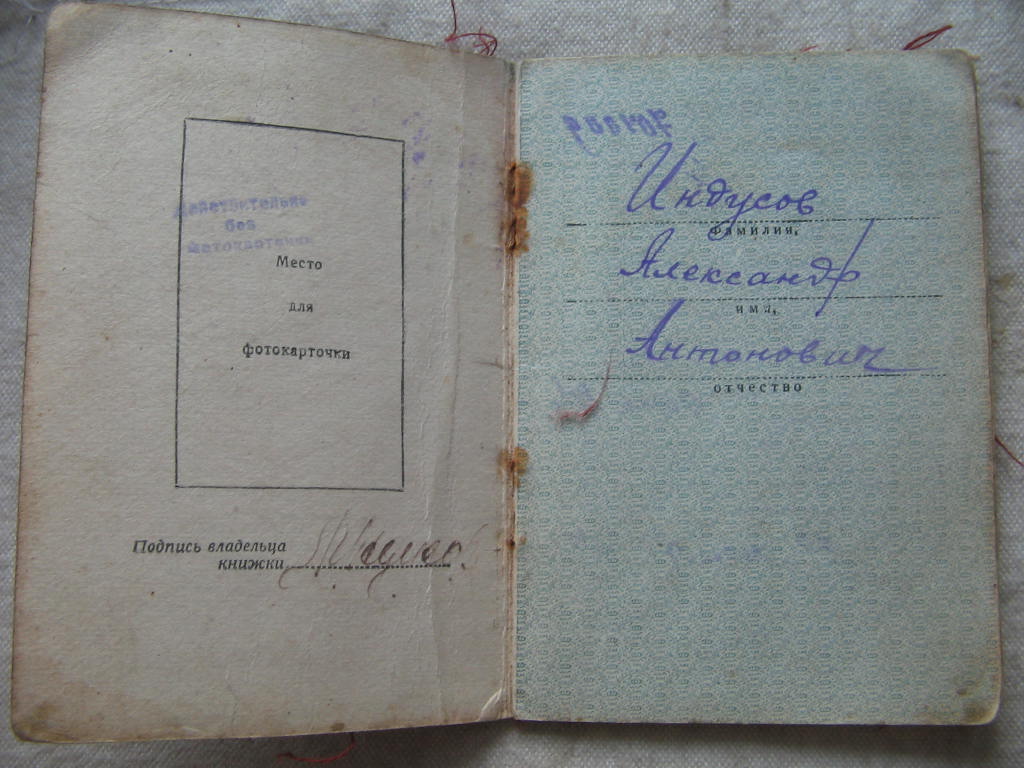 Действительно
без
фотокарточки
Место
для
фотокарточки
Подпись владельца
книжки
Индусов
фамилия,
Александр
имя,
Антонович
отчество